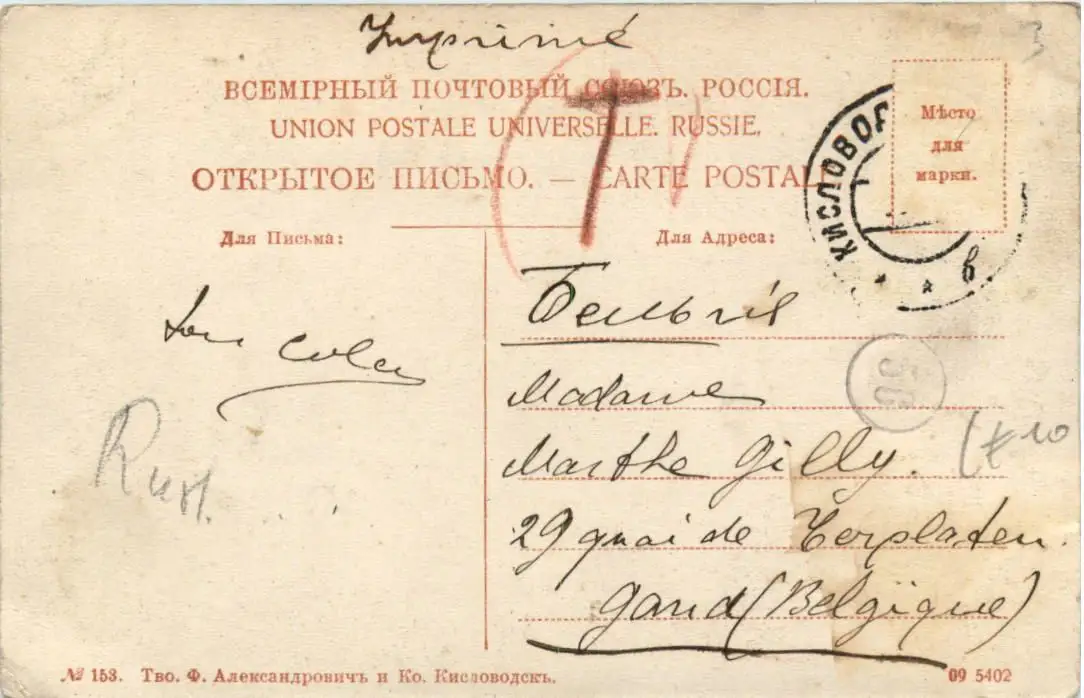 Imprimé
3
ВСЕМІРНЫЙ ПОЧТОВЫЙ СОЮЗЪ. РОССІЯ.
UNION POSTALE UNIVERSELLE. RUSSIE.
ОТКРЫТОЕ ПИСЬМО. — CARTE POSTALE
Мѣсто
для
марки.
КИСЛОВОД
в
T
Для Письма:
Для Адреса:
Бельгія
Madame
Marthe Gilly.
29 quai de Terplaten.
Gand (Belgïque)
№ 153. Тво. Ф. Александровичъ и Ко. Кисловодскъ.
09 5402